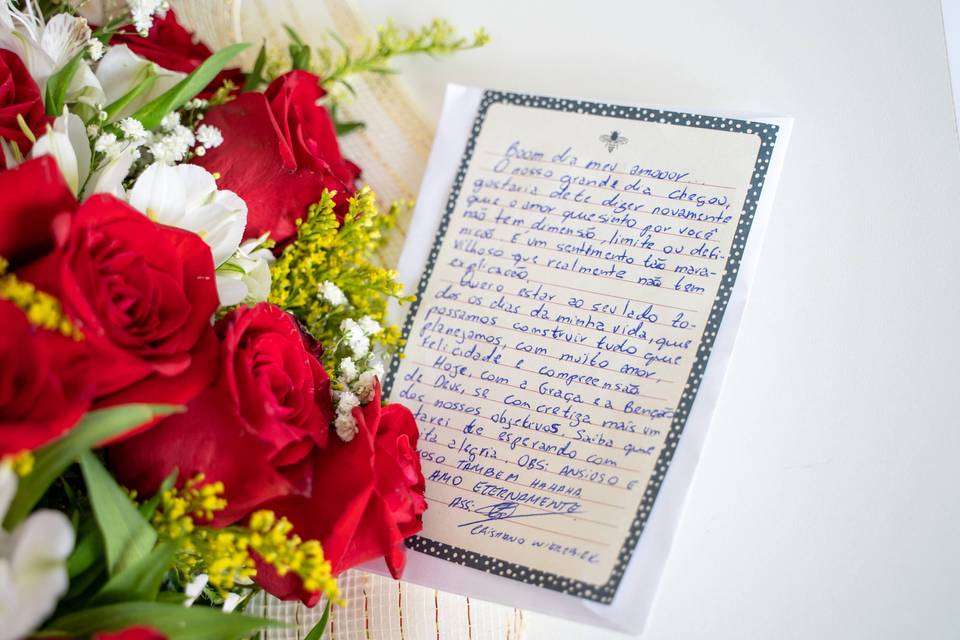 Boom dia meu amooor...
O nosso grande dia chegou,
gostaria de te dizer novamente
que o amor que sinto por você
não tem dimensão, limite ou defi-
nição. É um sentimento tão mara-
vilhoso que realmente não tem
explicação.
Quero estar ao seu lado to-
dos os dias da minha vida, que
possamos construir tudo que
planejamos, com muito amor,
felicidade e compreensão.
Hoje, com a Graça e a Benção
de Deus, se concretiza mais um
dos nossos objetivos. Saiba que
tarei te esperando com
ita alegria. OBS: ANSIOSO E
OSO TAMBEM HAHAHA
AMO ETERNAMENTE
ASS: